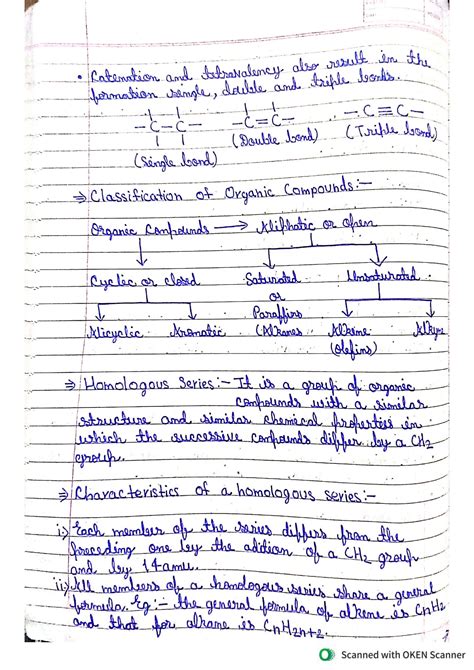 • Catenation and tetravalency also result in the
formation single, double and triple bonds.
-C-C- -C=C- -C≡C-
(Single bond) (Double bond) (Triple bond)
⇒ Classification of Organic Compounds:-
Organic Compounds → Aliphatic or open
Cyclic or closed Saturated Unsaturated
or
Paraffins
Alicyclic Aromatic (Alkanes Alkene Alkyne
(olefins)
⇒ Homologous Series:- It is a group of organic
compounds with a similar
structure and similar chemical properties in
which the successive compounds differ by a CH2
group.
⇒ Characteristics of a homologous series:-
i) Each member of the series differs from the
preceding one by the addition of a CH2 group
and by 14amu.
ii) All members of a homologous series share a general
formula. Eg:- the general formula of alkene is CnH2
and that for alkane is CnH2n+2.
Scanned with OKEN Scanner